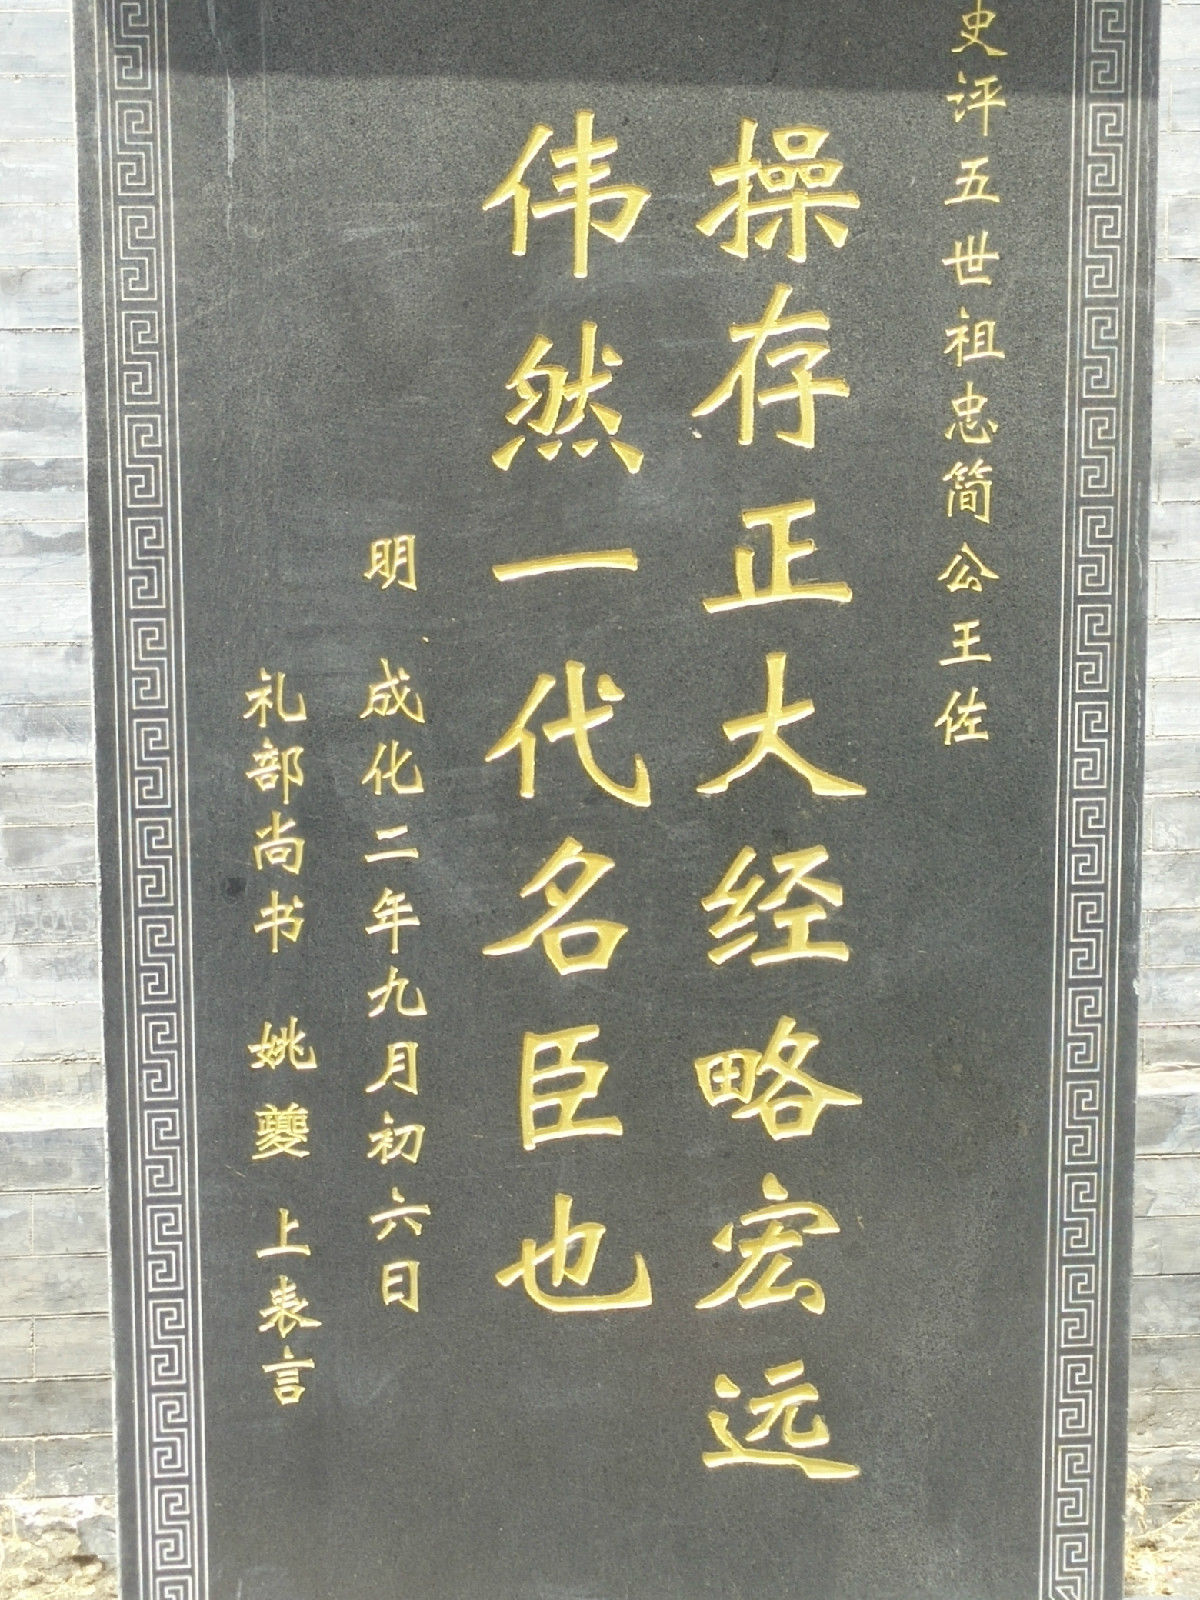 史评五世祖忠简公王佐
操存正大经略宏远
伟然一代名臣也
明 成化二年九月初六日
礼部尚书 姚夔 上表言